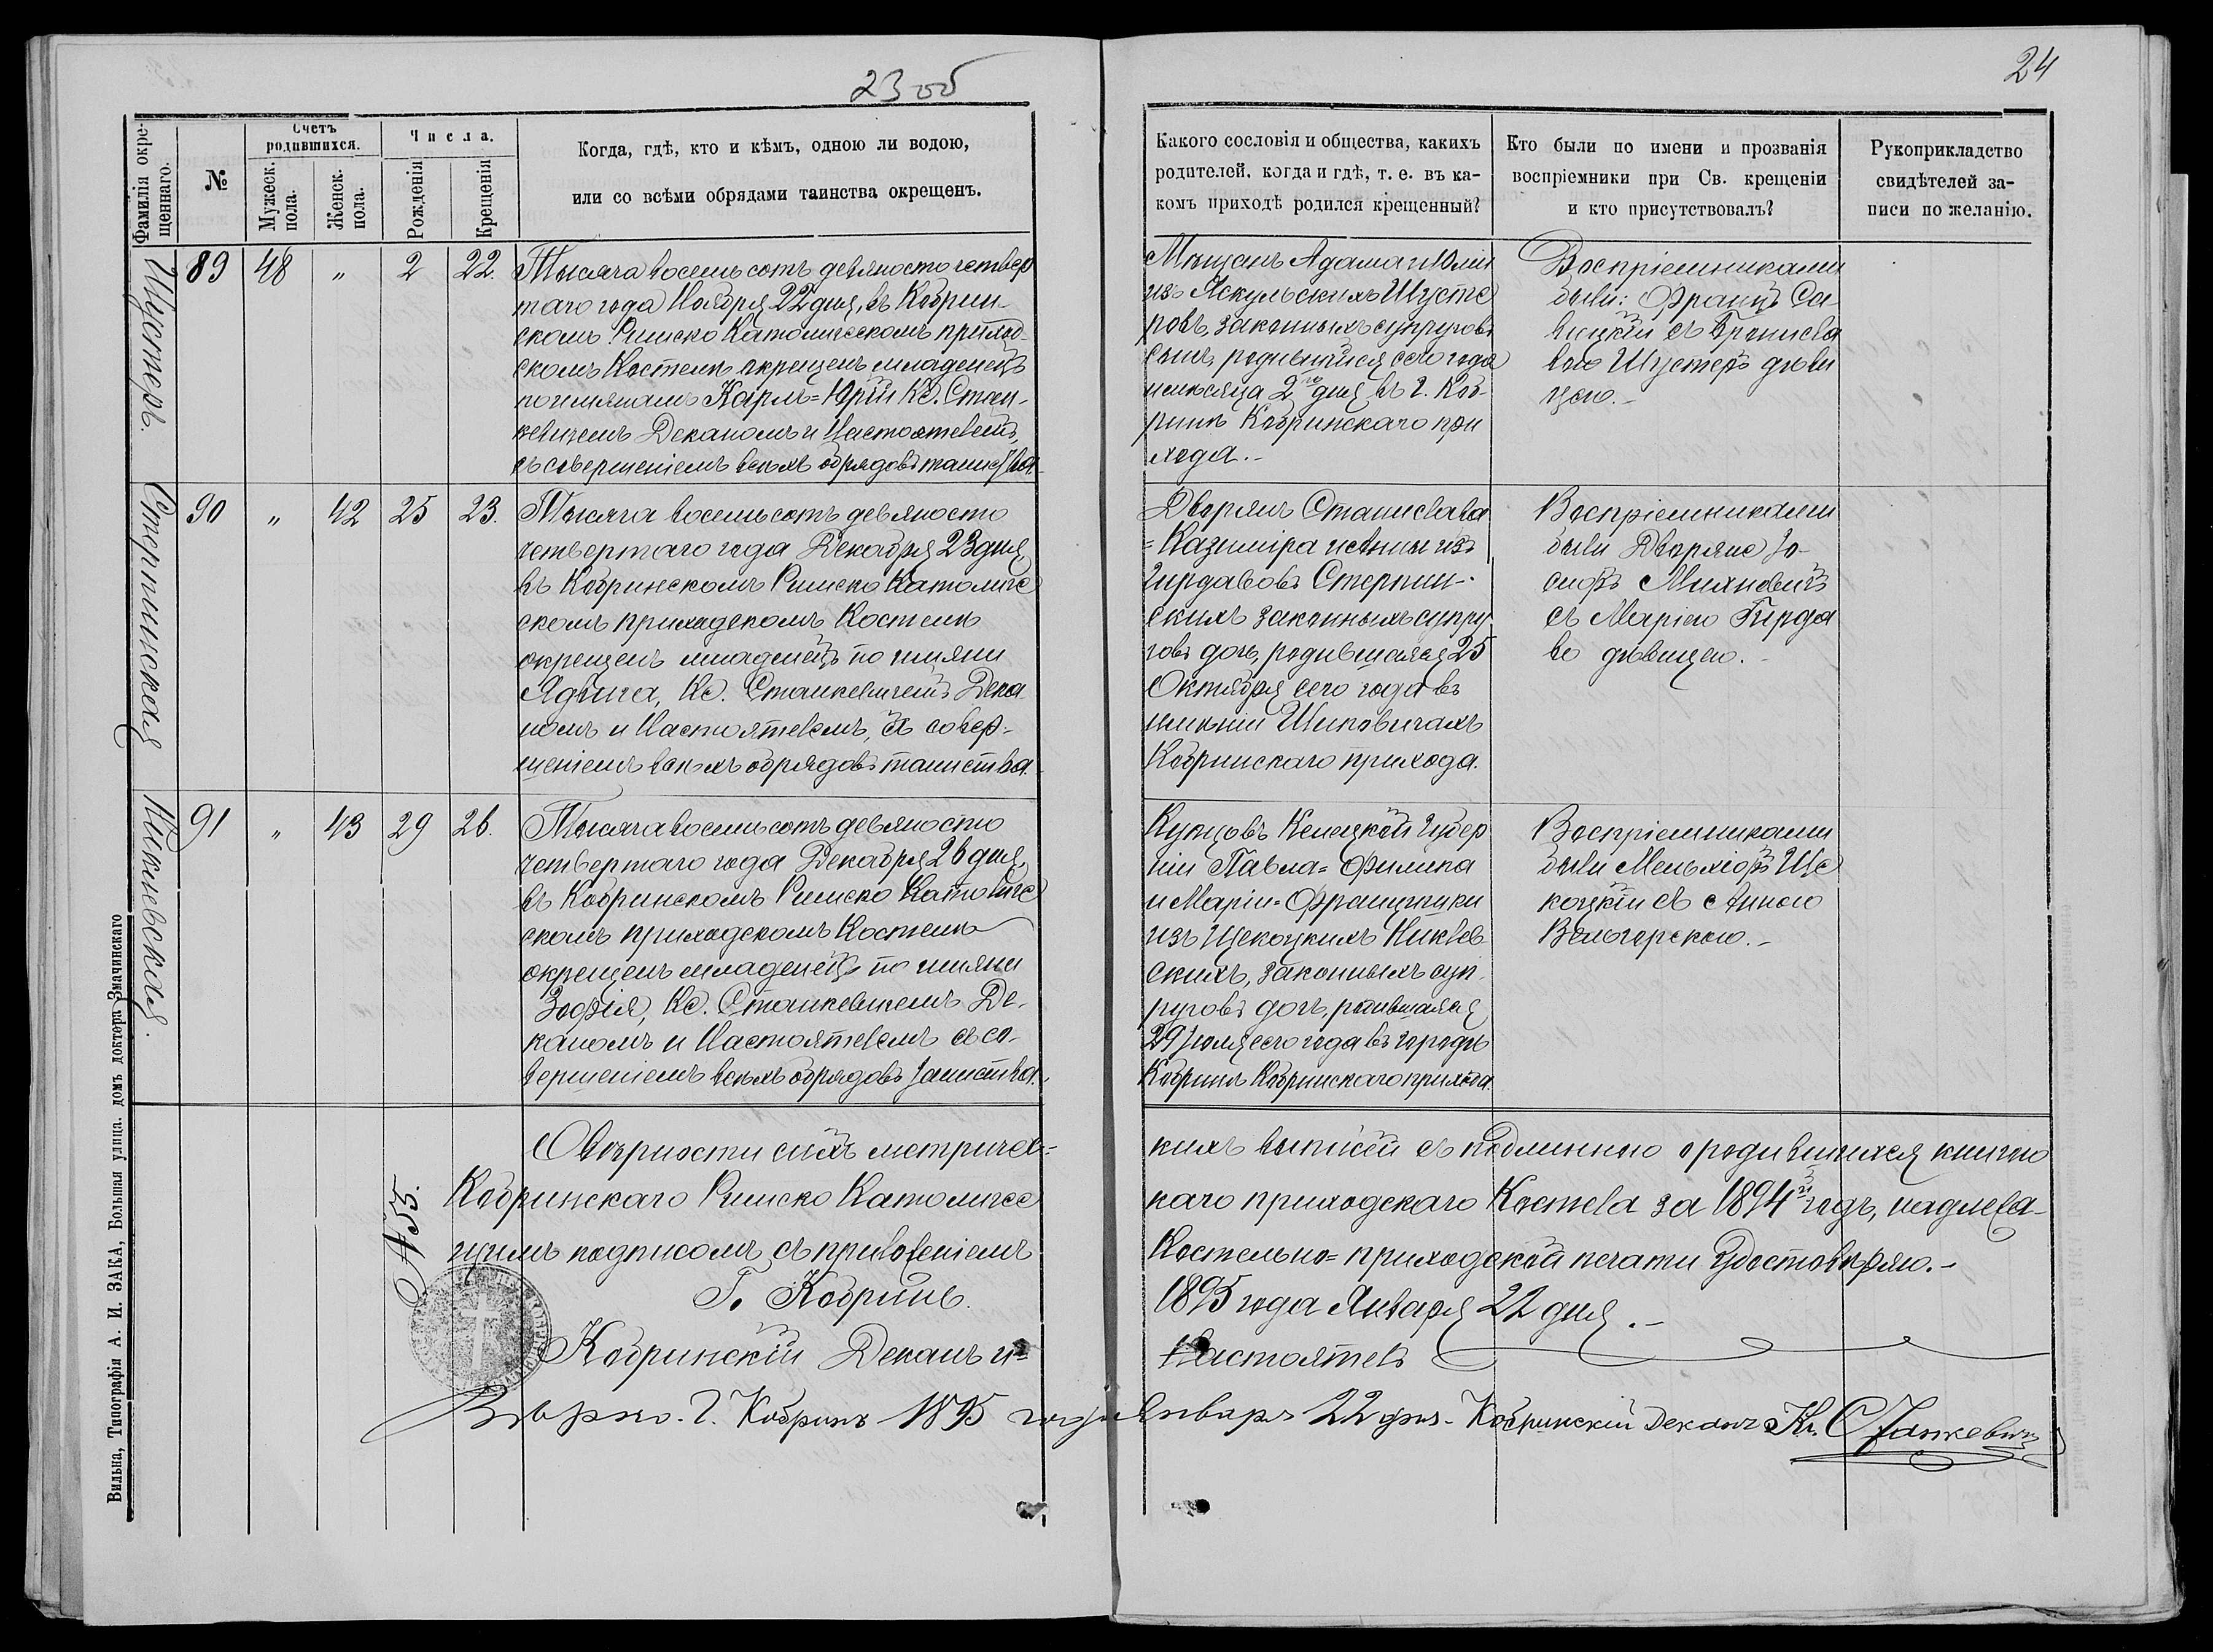 23 об
24
Фамилія окре-
щеннаго.
№
Счетъ
родившихся.
Мужеск.
пола.
Женск.
пола.
Числа.
Рожденія
Крещенія
Когда, гдѣ, кто и кѣмъ, одною ли водою,
или со всѣми обрядами таинства окрещенъ.
Какого сословія и общества, какихъ
родителей, когда и гдѣ, т. е. въ ка-
комъ приходѣ родился крещенный?
Кто были по имени и прозванія
воспріемники при Св. крещеніи
и кто присутствовалъ?
Рукоприкладство
свидѣтелей за-
писи по желанію.
Шустеръ.
89 48 „ 2 22.
Тысяча восемьсотъ девяносто четвер
таго года Ноября 22 дня, въ Кобрин-
скомъ Римско Католическомъ приход-
скомъ Костелѣ окрещенъ младенецъ
по имянамъ Карлъ=Юрій Кс. Стан-
кевичемъ Деканомъ и Настоятелемъ,
съ совершеніемъ всѣхъ обрядовъ таинства.
Мѣщанъ Адама и Юліи
изъ Яскульскихъ Шусте
ровъ, законныхъ супруговъ
сынъ, родившійся сего года
и мѣсяца 2го дня въ г. Коб-
ринѣ Кобринскаго при
хода.-
Воспріемниками
были: Францъ Са-
вицкій съ Брониславо
вою Шустеръ дѣви
цею.-
Стерпинская
90 „ 42 25 23.
Тысяча восемьсотъ девяносто
четвертаго года Декабря 23 дня
въ Кобринскомъ Римско Католиче
скомъ приходскомъ Костелѣ
окрещенъ младенецъ по имяни
Ядвига, Кс. Станкевичемъ Дека
номъ и Настоятелемъ, съ совер-
шеніемъ всѣхъ обрядовъ таинства.
Дворянъ Станислава
=Казиміра и Анны изъ
Гирдавовъ Стерпин-
скихъ законныхъ супру
говъ дочь, родившаяся 25
Октября сего года въ
имѣніи Шиповичахъ
Кобринскаго прихода.
Воспріемниками
были Дворяне Іо-
сифъ Мияновичъ
съ Маріею Гирда
во дѣвицею.-
Никлевская.
91 „ 43 29 26.
Тысяча восемьсотъ девяносто
четвертаго года Декабря 26 дня,
въ Кобринскомъ Римско Католиче
скомъ приходскомъ Костелѣ
окрещенъ младенецъ по имяни
Зофія, Кс. Станкевичемъ Де-
каномъ и Настоятелемъ съ со-
вершеніемъ всѣхъ обрядовъ таинства.
Купцовъ Келецкой Губер
ніи Павла=Филипа
и Маріи=Францишки
изъ Щекоцкихъ Никлев
скихъ, законныхъ суп-
руговъ дочь, родившаяся
29 Іюля сего года въ городѣ
Кобринѣ Кобринскаго прихода.
Воспріемниками
были Мельхіоръ Ще
коцкій съ Анною
Вельгорскою.-
О вѣрности сихъ метричес=
кихъ выписей съ подлинною о родившихся книгою
Кобринскаго Римско Католичес
каго приходскаго Костела за 1894й годъ, надлежа-
щимъ подписомъ съ приложеніемъ
Костельно=приходской печати удостовѣряю.-
№ 55.
Г. Кобринъ.
1895 года Января 22 дня.-
Кобринскій Деканъ и=
Настоятель
Вѣрно. Г. Кобринъ 1895 года Января 22 дня. Кобринскій Деканъ Кс. Станкевичъ
Вильна, Типографія А. И. ЗАКА, Большая улица. домъ доктора Змачинскаго